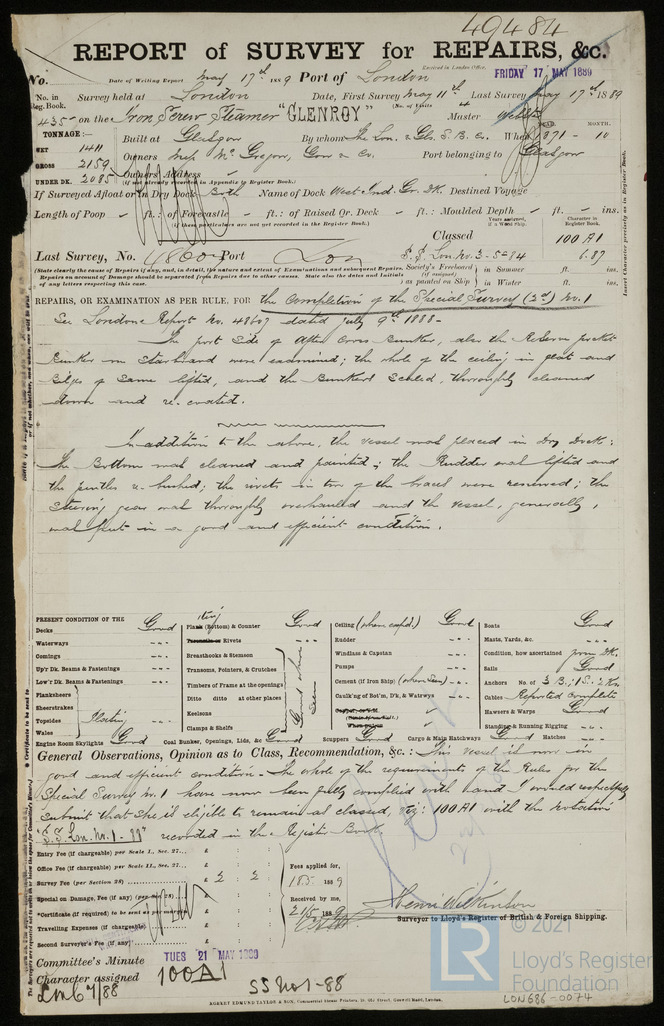 49484
REPORT of SURVEY for REPAIRS, &c.
Received in London Office,
No. Date of Writing Report May 17th 1889 Port of London FRIDAY 17 MAY 1889
No. in Reg. Book. Survey held at London Date, First Survey May 11th Last Survey May 17th 1889
(No. of Visits 4
435 on the Iron Screw Steamer "GLENROY" Master Webster
TONNAGE:— Built at Glasgow By whom The Lon. & Gls. S. B. Co. When 1871 - 10
YEAR. MONTH.
NET 1411
GROSS 2159 Owners Messrs McGregor, Gow & Co. Port belonging to Glasgow
UNDER DK. 2085 Owners' Address -
(if not already recorded in Appendix to Register Book.)
If Surveyed Afloat or in Dry Dock Both Name of Dock West Ind. Gr. Dk. Destined Voyage
Length of Poop - ft. : of Forecastle - ft. : of Raised Qr. Deck - ft. : Moulded Depth - ft. - ins.
(if these particulars are not yet recorded in the Register Book).
Character in Register Book.
Classed 100 A1
Last Survey, No. 48607 Port Lon S.S. Lon. No. 3-5-84 6.87
(State clearly the cause of Repairs if any, and, in detail, the nature and extent of Examinations and subsequent Repairs. Repairs on account of Damage should be separated from Repairs due to other causes. State also the dates and initials of any letters respecting this case.
Society's Freeboard (if assigned) as painted on Ship in Summer ft. ins.
in Winter ft. ins.
REPAIRS, OR EXAMINATION AS PER RULE, FOR the Completion of the Special Survey (2nd) No. 1
See London Report No. 48607 dated July 9th 1888-
The port side of after Cross Bunker, also the Reserve pocket
Bunker on Starboard were examined; the whole of the ceiling in flat and
bilges of same lifted, and the Bunkers Scaled, thoroughly cleaned
down and re.coated.
In addition to the above, the vessel was placed in Dry Dock:
The Bottom was cleaned and painted; the Rudder was lifted and
the pintles re bushed; the rivets in two of the braces were renewed; the
steering gear was thoroughly overhauled and the vessel, generally,
was put in a good and efficient condition.
PRESENT CONDITION OF THE
Decks Good
Waterways ---
Comings ---
Up'r Dk. Beams & Fastenings ---
Low'r Dk. Beams & Fastenings ---
Planksheers
Sheerstrakes
Topsides
Wales
Plating
Engine Room Skylights Good
Plating (Bottom) & Counter Good
Rivets ---
Breasthooks & Stemson
Transoms, Pointers, & Crutches
Timbers of Frame at the openings
Ditto ditto at other places
Keelsons
Clamps & Shelfs
Good where seen
Coal Bunker, Openings, Lids, &c Good
Ceiling (when exp'd.) Good
Rudder ---
Windlass & Capstan ---
Pumps ---
Cement (if Iron Ship) (when Seen) ---
Caulk'ng of Bot'm, D'k, & Watrwys ---
Scuppers Good Cargo & Main Hatchways Good
Boats Good
Masts, Yards, &c. ---
Condition, how ascertained from Dk.
Sails Good
Anchors No. of 3 B; 1 S. 2 K.
Cables Reported complete
Hawsers & Warps Good
Standing & Running Rigging ---
Hatches ---
General Observations, Opinion as to Class, Recommendation, &c. : This vessel is now in
good and efficient condition - The whole of the requirements of the Rules for the
Special Survey No. 1 have now been fully complied with and I would respectfully
submit that she is eligible to remain as classed, viz: 100A1 with the notation
"S.S. Lon. No. 1 - 88" recorded in the Register Book.
Entry Fee (if chargeable) per Scale I., Sec. 27... £ : :
Office Fee (if chargeable) per Scale II., Sec. 27... £ : :
Survey Fee (per Section 28) £ 2 : 2 :
Special on Damage, Fee (if any) £ : :
Certificate (if required) £ : :
Travelling Expenses (if chargeable) £ : :
Second Surveyor's Fee (if any) £ : :
Fees applied for,
18.5 1889
Received by me,
21/5 1889
Henri Wilkinson
Surveyor to Lloyd's Register of British & Foreign Shipping.
Committee's Minute TUES 21 MAY 1889
Character assigned 100A1
Lon 6 7/88 SS No 1-88
ROBERT EDMUND TAYLOR & SON, Commercial Steam Printers, 19, Old Street, Goswell Road, London.
© 2021
LR
Lloyd's Register
Foundation
LON686-0074